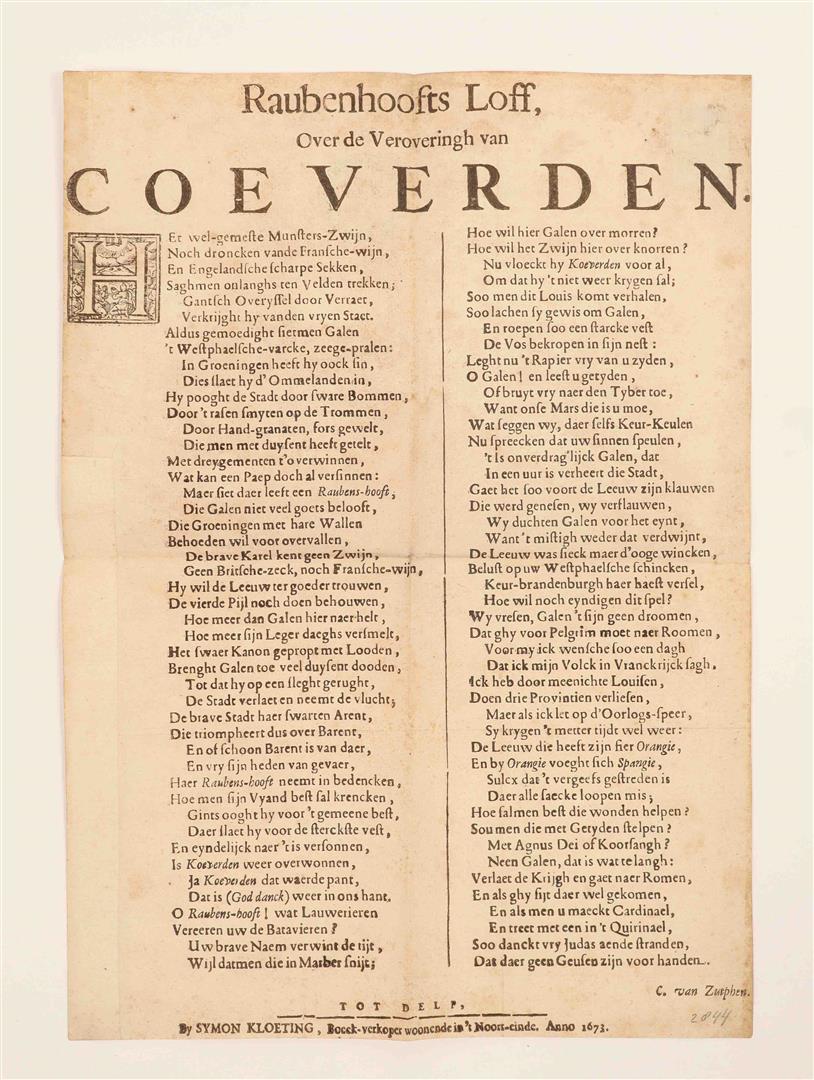 Raubenhoofts Loff,
Over de Veroveringh van
COEVERDEN.
HEt wel-gemeſte Munſters-Zwijn,
Noch droncken vande Franſche-wijn,
En Engelandſche ſcharpe Sekken,
Saghmen onlanghs ten Velden trekken;
Gantſch Overyſſel door Verraet,
Verkrijght hy vanden vryen Staet.
Aldus gemoedight ſietmen Galen
't Weſtphaelſche-varcke, zeege-pralen:
In Groeningen heeft hy oock ſin,
Dies ſlaet hy d'Ommelanden in,
Hy pooght de Stadt door ſware Bommen,
Door 't raſen ſmyten op de Trommen,
Door Hand-granaten, fors gewelt,
Die men met duyſent heeft getelt,
Met dreygementen t'overwinnen,
Wat kan een Paep doch al verſinnen:
Maer ſiet daer leeft een Raubens-hooft,
Die Galen niet veel goets belooft,
Die Groeningen met hare Wallen
Behoeden wil voor overvallen,
De brave Karel kent geen Zwijn,
Geen Britſche-zeck, noch Franſche-wijn,
Hy wil de Leeuw ter goeder trouwen,
De vierde Pijl noch doen behouwen,
Hoe meer dan Galen hier naer helt,
Hoe meer ſijn Leger daeghs verſmelt,
Het ſwaer Kanon gepropt met Looden,
Brenght Galen toe veel duyſent dooden,
Tot dat hy op een ſleght gerught,
De Stadt verlaet en neemt de vlucht;
De brave Stadt haer ſwarten Arent,
Die triompheert dus over Barent,
En of ſchoon Barent is van daer,
En vry ſijn heden van gevaer,
Haer Raubens-hooft neemt in bedencken,
Hoe men ſijn Vyand beſt ſal krencken,
Gints ooght hy voor 't gemeene beſt,
Daer ſlaet hy voor de ſterckſte veſt,
En eyndelijck naer 't is verſonnen,
Is Koeverden weer overwonnen,
Ja Koeverden dat waerde pant,
Dat is (God danck) weer in ons hant.
O Raubens-hooft! wat Lauwerieren
Vereeren uw de Batavieren?
Uw brave Naem verwint de tijt,
Wijl datmen die in Marber ſnijt;
Hoe wil hier Galen over morren?
Hoe wil het Zwijn hier over knorren?
Nu vloeckt hy Koeverden voor al,
Om dat hy 't niet weer krygen ſal;
Soo men dit Louis komt verhalen,
Soo lachen ſy gewis om Galen,
En roepen ſoo een ſtarcke veſt
De Vos bekropen in ſijn neſt:
Leght nu 't Rapier vry van u zyden,
O Galen! en leeſt u getyden,
Of bruyt vry naer den Tyber toe,
Want onſe Mars die is u moe,
Wat ſeggen wy, daer ſelfs Keur-Keulen
Nu ſpreecken dat uw ſinnen ſpeulen,
't Is onverdrag'lijck Galen, dat
In een uur is verheert die Stadt,
Gaet het ſoo voort de Leeuw zijn klauwen
Die werd geneſen, wy verflauwen,
Wy duchten Galen voor het eynt,
Want 't miſtigh weder dat verdwijnt,
De Leeuw was ſieck maer d'ooge wincken,
Beluſt op uw Weſtphaelſche ſchincken,
Keur-brandenburgh haer haeſt verſel,
Hoe wil noch eyndigen dit ſpel?
Wy vreſen, Galen 't ſijn geen droomen,
Dat ghy voor Pelgrim moet naer Roomen,
Voor my ick wenſche ſoo een dagh
Dat ick mijn Volck in Vranckrijck ſagh.
Ick heb door meenichte Louiſen,
Doen drie Provintien verlieſen,
Maer als ick let op d'Oorlogs-ſpeer,
Sy krygen 't metter tijdt wel weer:
De Leeuw die heeft zijn fier Orangie,
En by Orangie voeght ſich Spangie,
Sulcx dat 't vergeefs geſtreden is
Daer alle ſaecke loopen mis;
Hoe ſalmen beſt die wonden helpen?
Sou men die met Getyden ſtelpen?
Met Agnus Dei of Koorſangh?
Neen Galen, dat is wat te langh:
Verlaet de Krijgh en gaet naer Romen,
En als ghy ſijt daer wel gekomen,
En als men u maeckt Cardinael,
En treet met een in 't Quirinael,
Soo danckt vry Judas aende ſtranden,
Dat daer geen Geuſen zijn voor handen.
C. van Zutphen.
TOT DELF,
By SYMON KLOETING, Boeck-verkoper woonende in 't Noort-einde. Anno 1673.
2844